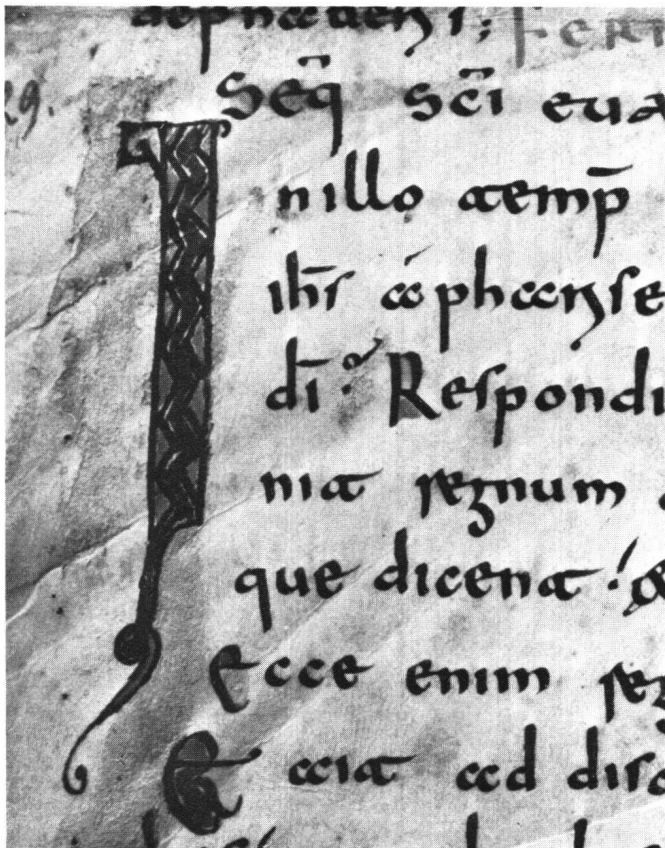 29.
Seq̄ sc̄i eua
In illo temp̄
ih̄s a pharise
dī. Respondi
nit regnum
que dicent
Ecce enim reg
E ait ad disc